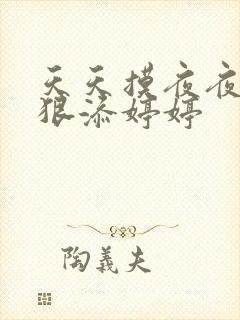 天天摸夜夜
狠添婷婷
陶義夫